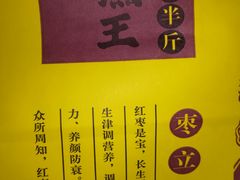 王
半斤
枣立
红枣是宝，长生
生津调营养，
力、养颜防衰。
众所周知，红